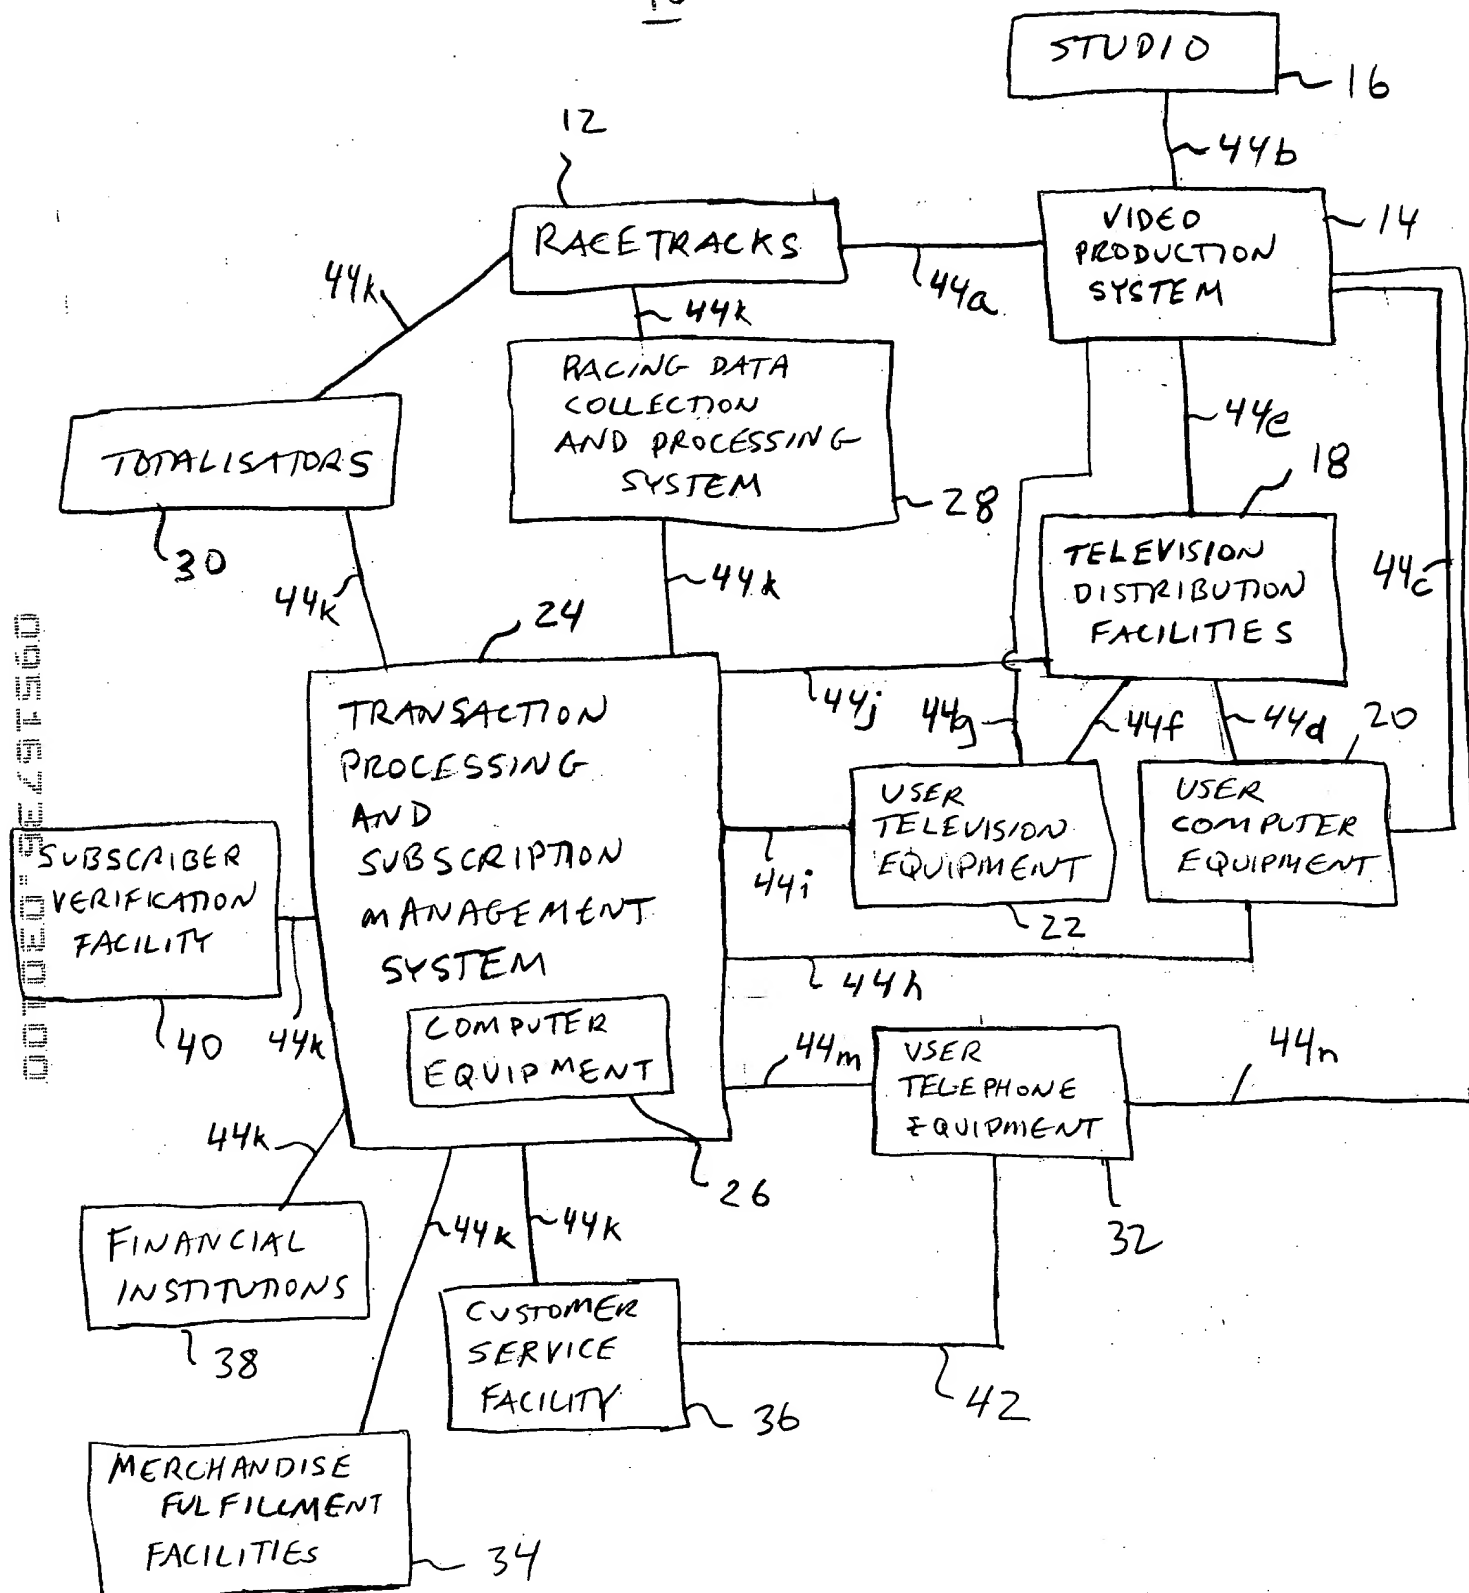 STUDIO
16
12
44b
RACETRACKS
VIDEO
PRODUCTION
SYSTEM
14
44k
44a
44k
RACING DATA
COLLECTION
AND PROCESSING
SYSTEM
28
TOTALISATORS
30
44e
18
TELEVISION
DISTRIBUTION
FACILITIES
44c
44k
44k
24
TRANSACTION
PROCESSING
AND
SUBSCRIPTION
MANAGEMENT
SYSTEM
COMPUTER
EQUIPMENT
26
44j
44g
44f
44d
20
USER
TELEVISION
EQUIPMENT
22
USER
COMPUTER
EQUIPMENT
44i
44h
SUBSCRIBER
VERIFICATION
FACILITY
40
44k
44m
USER
TELEPHONE
EQUIPMENT
32
44n
44k
44k
44k
FINANCIAL
INSTITUTIONS
38
CUSTOMER
SERVICE
FACILITY
36
42
MERCHANDISE
FULFILLMENT
FACILITIES
34